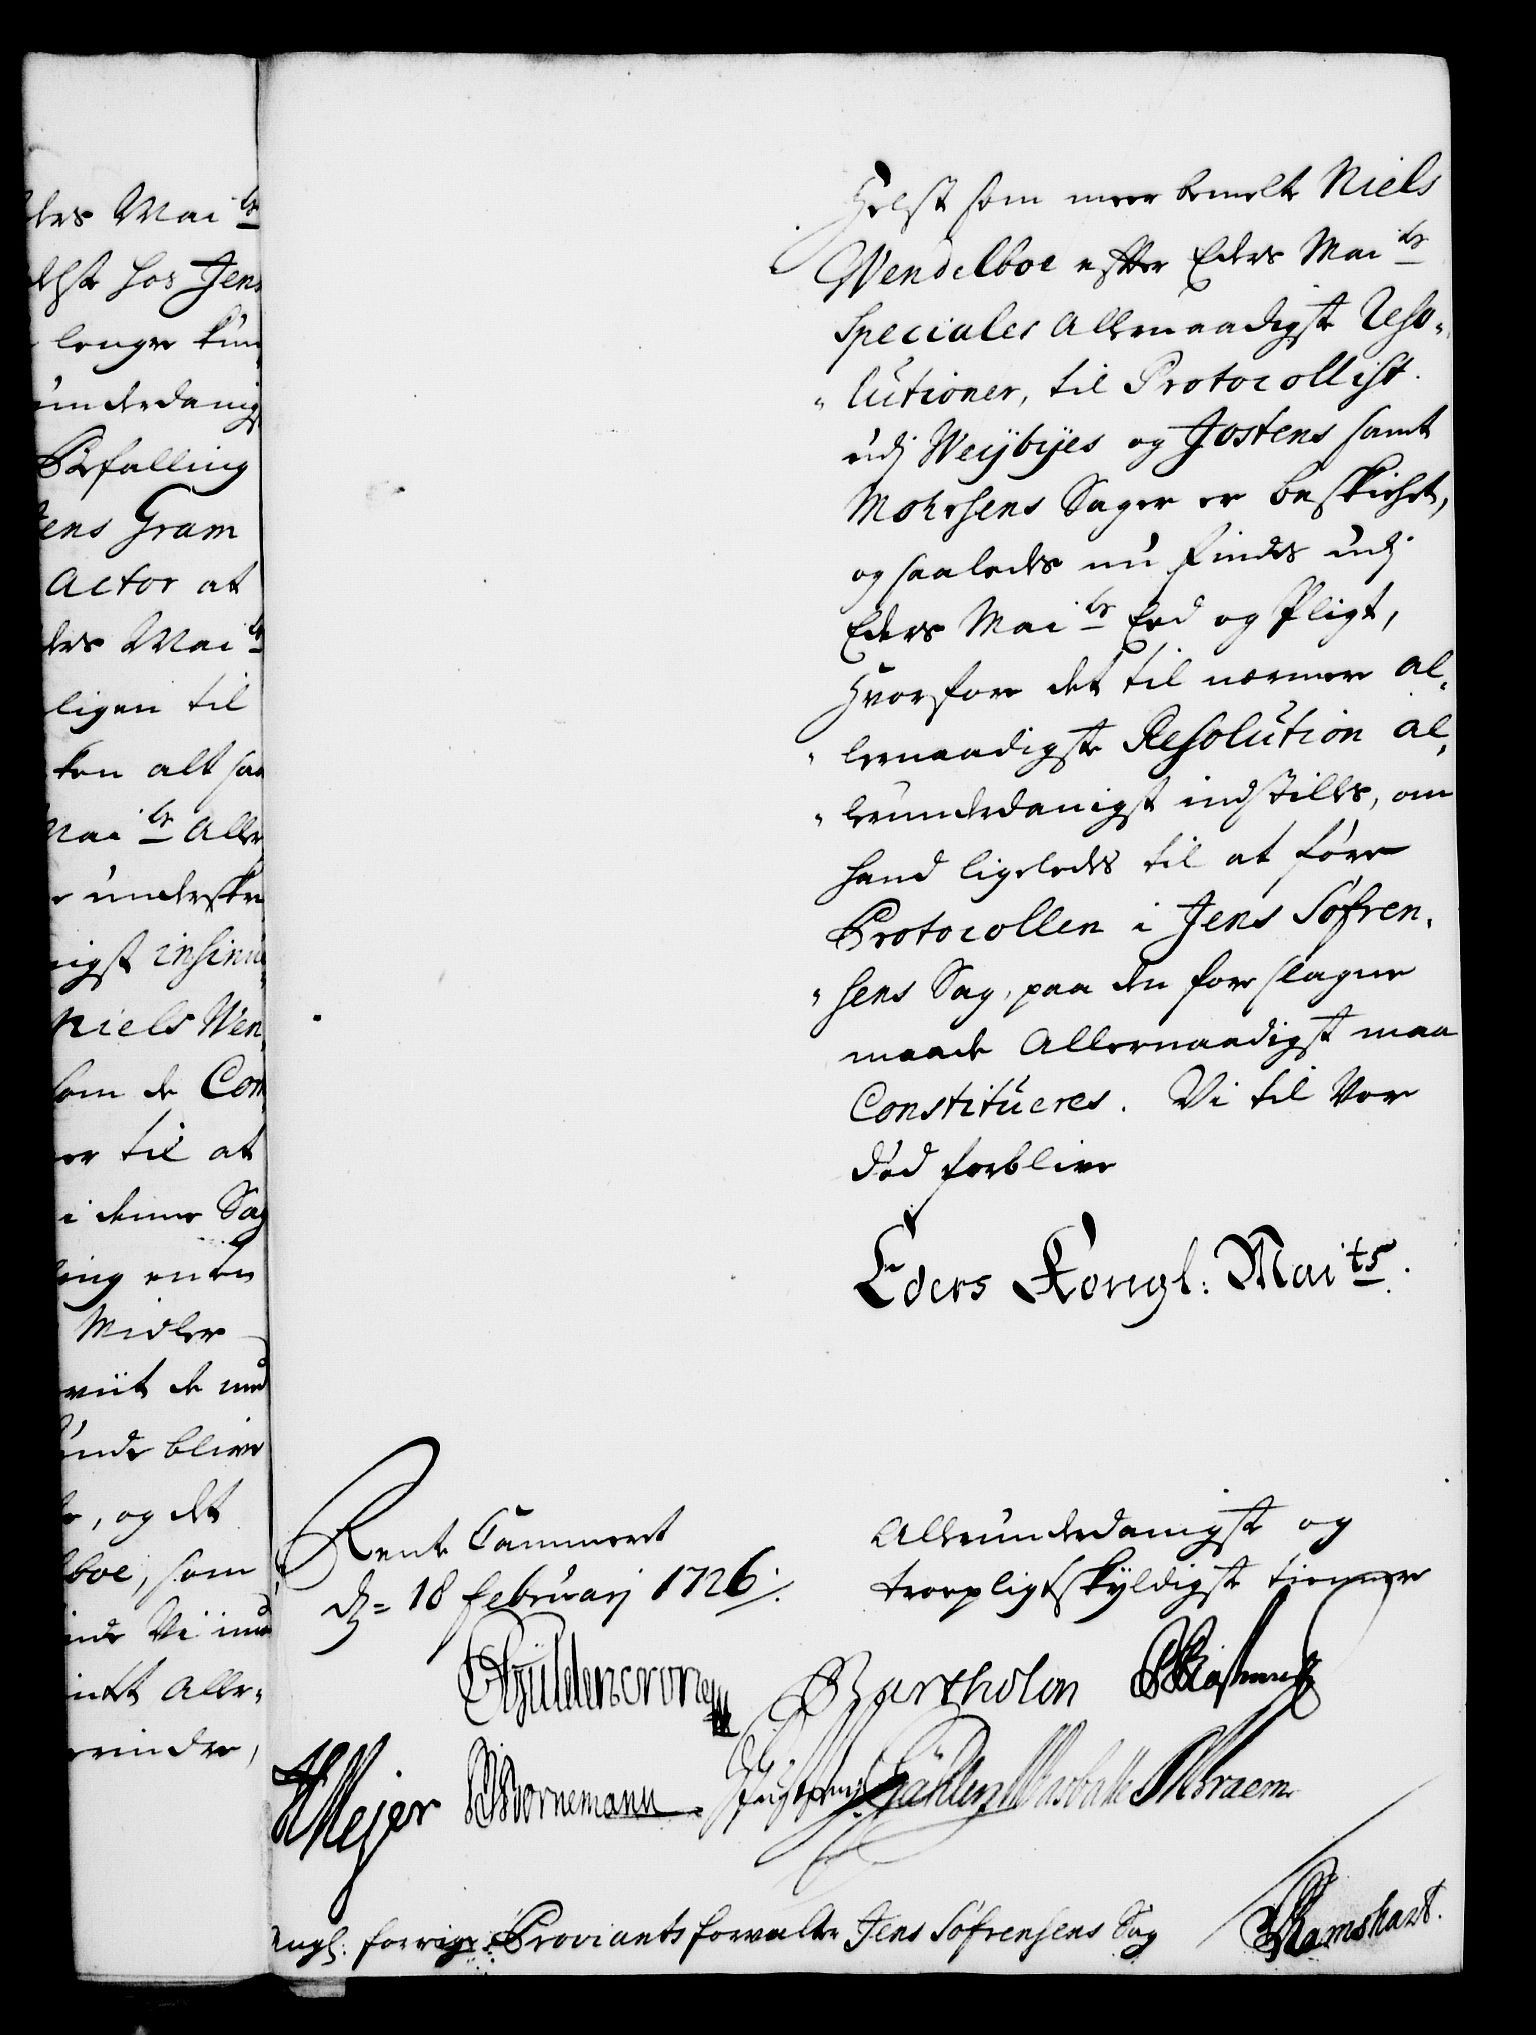 ders Mai ts
delst hos Jens
lenger kun
underdanigs
Befalling
Jens Gram
Actor at
ders Mai ts
ligen til
ken alt saa
Mai ts Aller
underskre
nigst insinu
Niels Wen,
som de Com
er til at
i denne Sag
ling enten
Midler
viit de med
kunde blive
, og det
boe, som
inde Vi
Alle,
mindre,
Helst som meer bemelte Niels
Wendelboe efter Eders Mai ts
Speciales Allernaadigste Reso,
„lutioner, til Protocollist
udj Weybyes og Jostens samt
Mohrsens Sager er beskicket,
og saaledes nu findes udj
Eders Mai ts Eed og Pligt,
Hvorfore det til nermere al,
„lernaadigste Resolution al,
„lerunderdanigst indstilles, om
hand ligeledes til at føre
Protocollen i Jens Søfren,
„sens Sag, paa den foreslagne
maade Allernaadigst maa
Constitueres. Vi til Vor
død forblive
Eders Kongl: Mai ts.
Rente Cammeret
d= 18 Februarj 1726.
Allerunderdanigste og
troepligtskyldigste tienere
Güldencrone
Bartholin
HMejer
Bornemann
Ramshart.
angl: forrige Proviantsforvalter Jens Søfrensens Sag